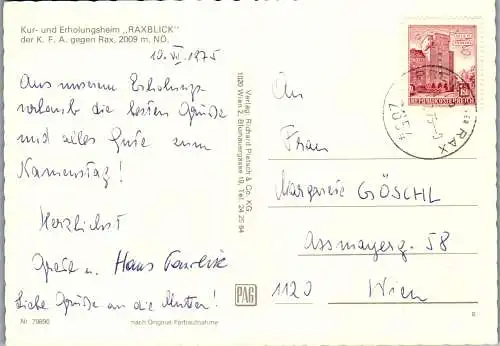 Kur- und Erholungsheim „RAXBLICK"
der K. F. A. gegen Rax, 2009 m. NÖ.
10. VII. 1975
Aus unserem Erholungs-
urlaub die besten Grüße
und alles Gute zum
Namenstag!
Herzlichst
Grete u. Hans
Liebe Grüße an die Mutter!
Nr. 79890
nach Original-Farbaufnahme
Verlag: Richard Pietsch & Co. KG.
1020 Wien 2, Blumauergasse 19, Tel. 24 25 64
PAG
REPUBLIK ÖSTERREICH
RAX
An
Frau
Margarete GÖSCHL
Assmayerg. 58
1120 Wien